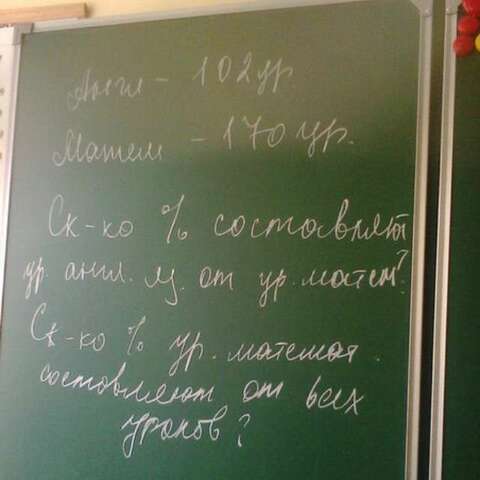 Англ - 102 ур.
Матем - 170 ур.
Ск-ко % составляют
ур. англ. яз. от ур. матем?
Ск-ко % ур. математ.
составляют от всех
уроков?